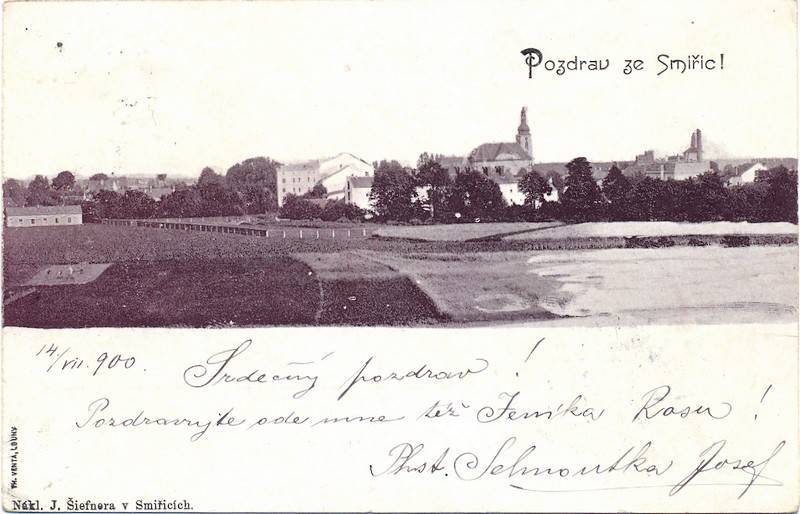 Pozdrav ze Smiřic!
14/VII. 900.
Srdečný pozdrav!
Pozdravujte ode mne též Jeníka Rosu!
Josef
PH. VENTA, LOUNY
Nákl. J. Šiefnera v Smiřicích.